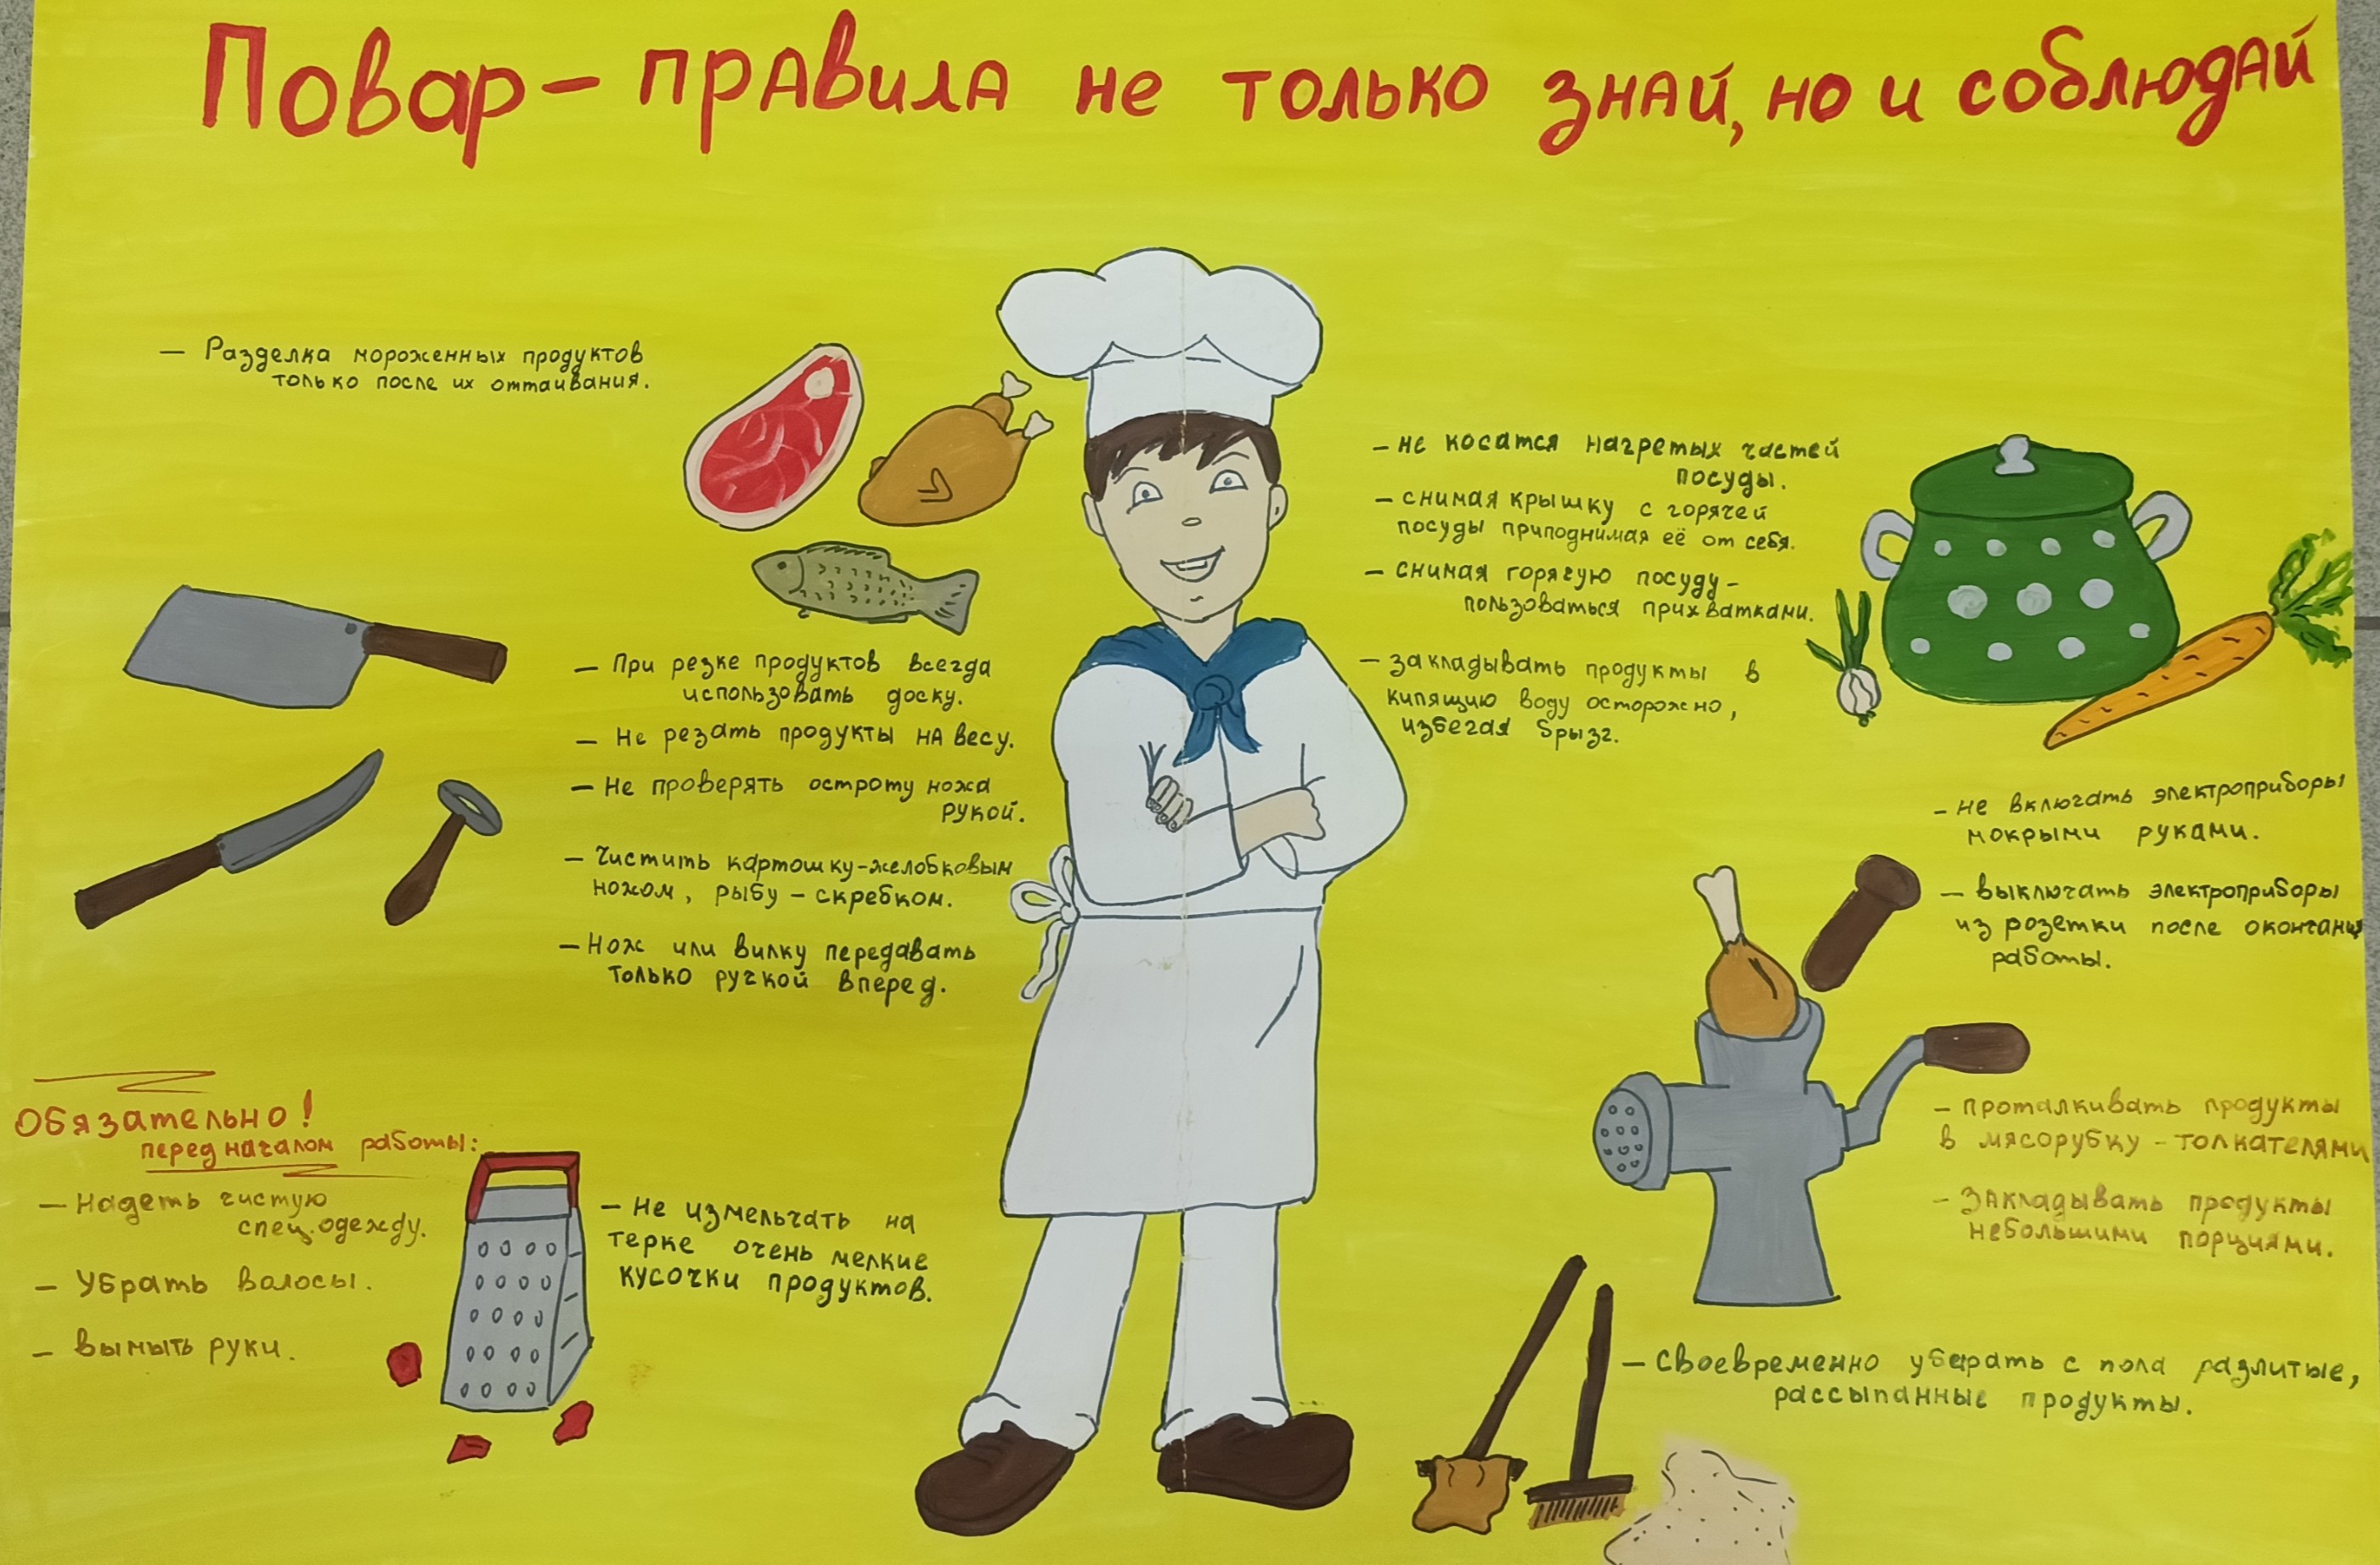 Повар – правила не только знай, но и соблюдай
– Разделка мороженных продуктов
только после их оттаивания.
– При резке продуктов всегда
использовать доску.
– Не резать продукты на весу.
– Не проверять остроту ножа
рукой.
– Чистить картошку-желобковым
ножом, рыбу – скребком.
– Нож или вилку передавать
только ручкой вперед.
Обязательно!
перед началом работы:
– Надеть чистую
спец.одежду.
– Убрать волосы.
– Вымыть руки.
– Не измельчать на
терке очень мелкие
кусочки продуктов.
– не косатся нагретых частей
посуды.
– снимая крышку с горячей
посуды приподнимая её от себя.
– снимая горячую посуду –
пользоваться прихватками.
– закладывать продукты в
кипящию воду осторожно,
избегая брызг.
– не включать электроприборы
мокрыми руками.
– выключать электроприборы
из розетки после окончани
работы.
– проталкивать продукты
в мясорубку – толкателями
– Закладывать продукты
небольшими порциями.
– Своевременно убирать с пола разлитые,
рассыпанные продукты.